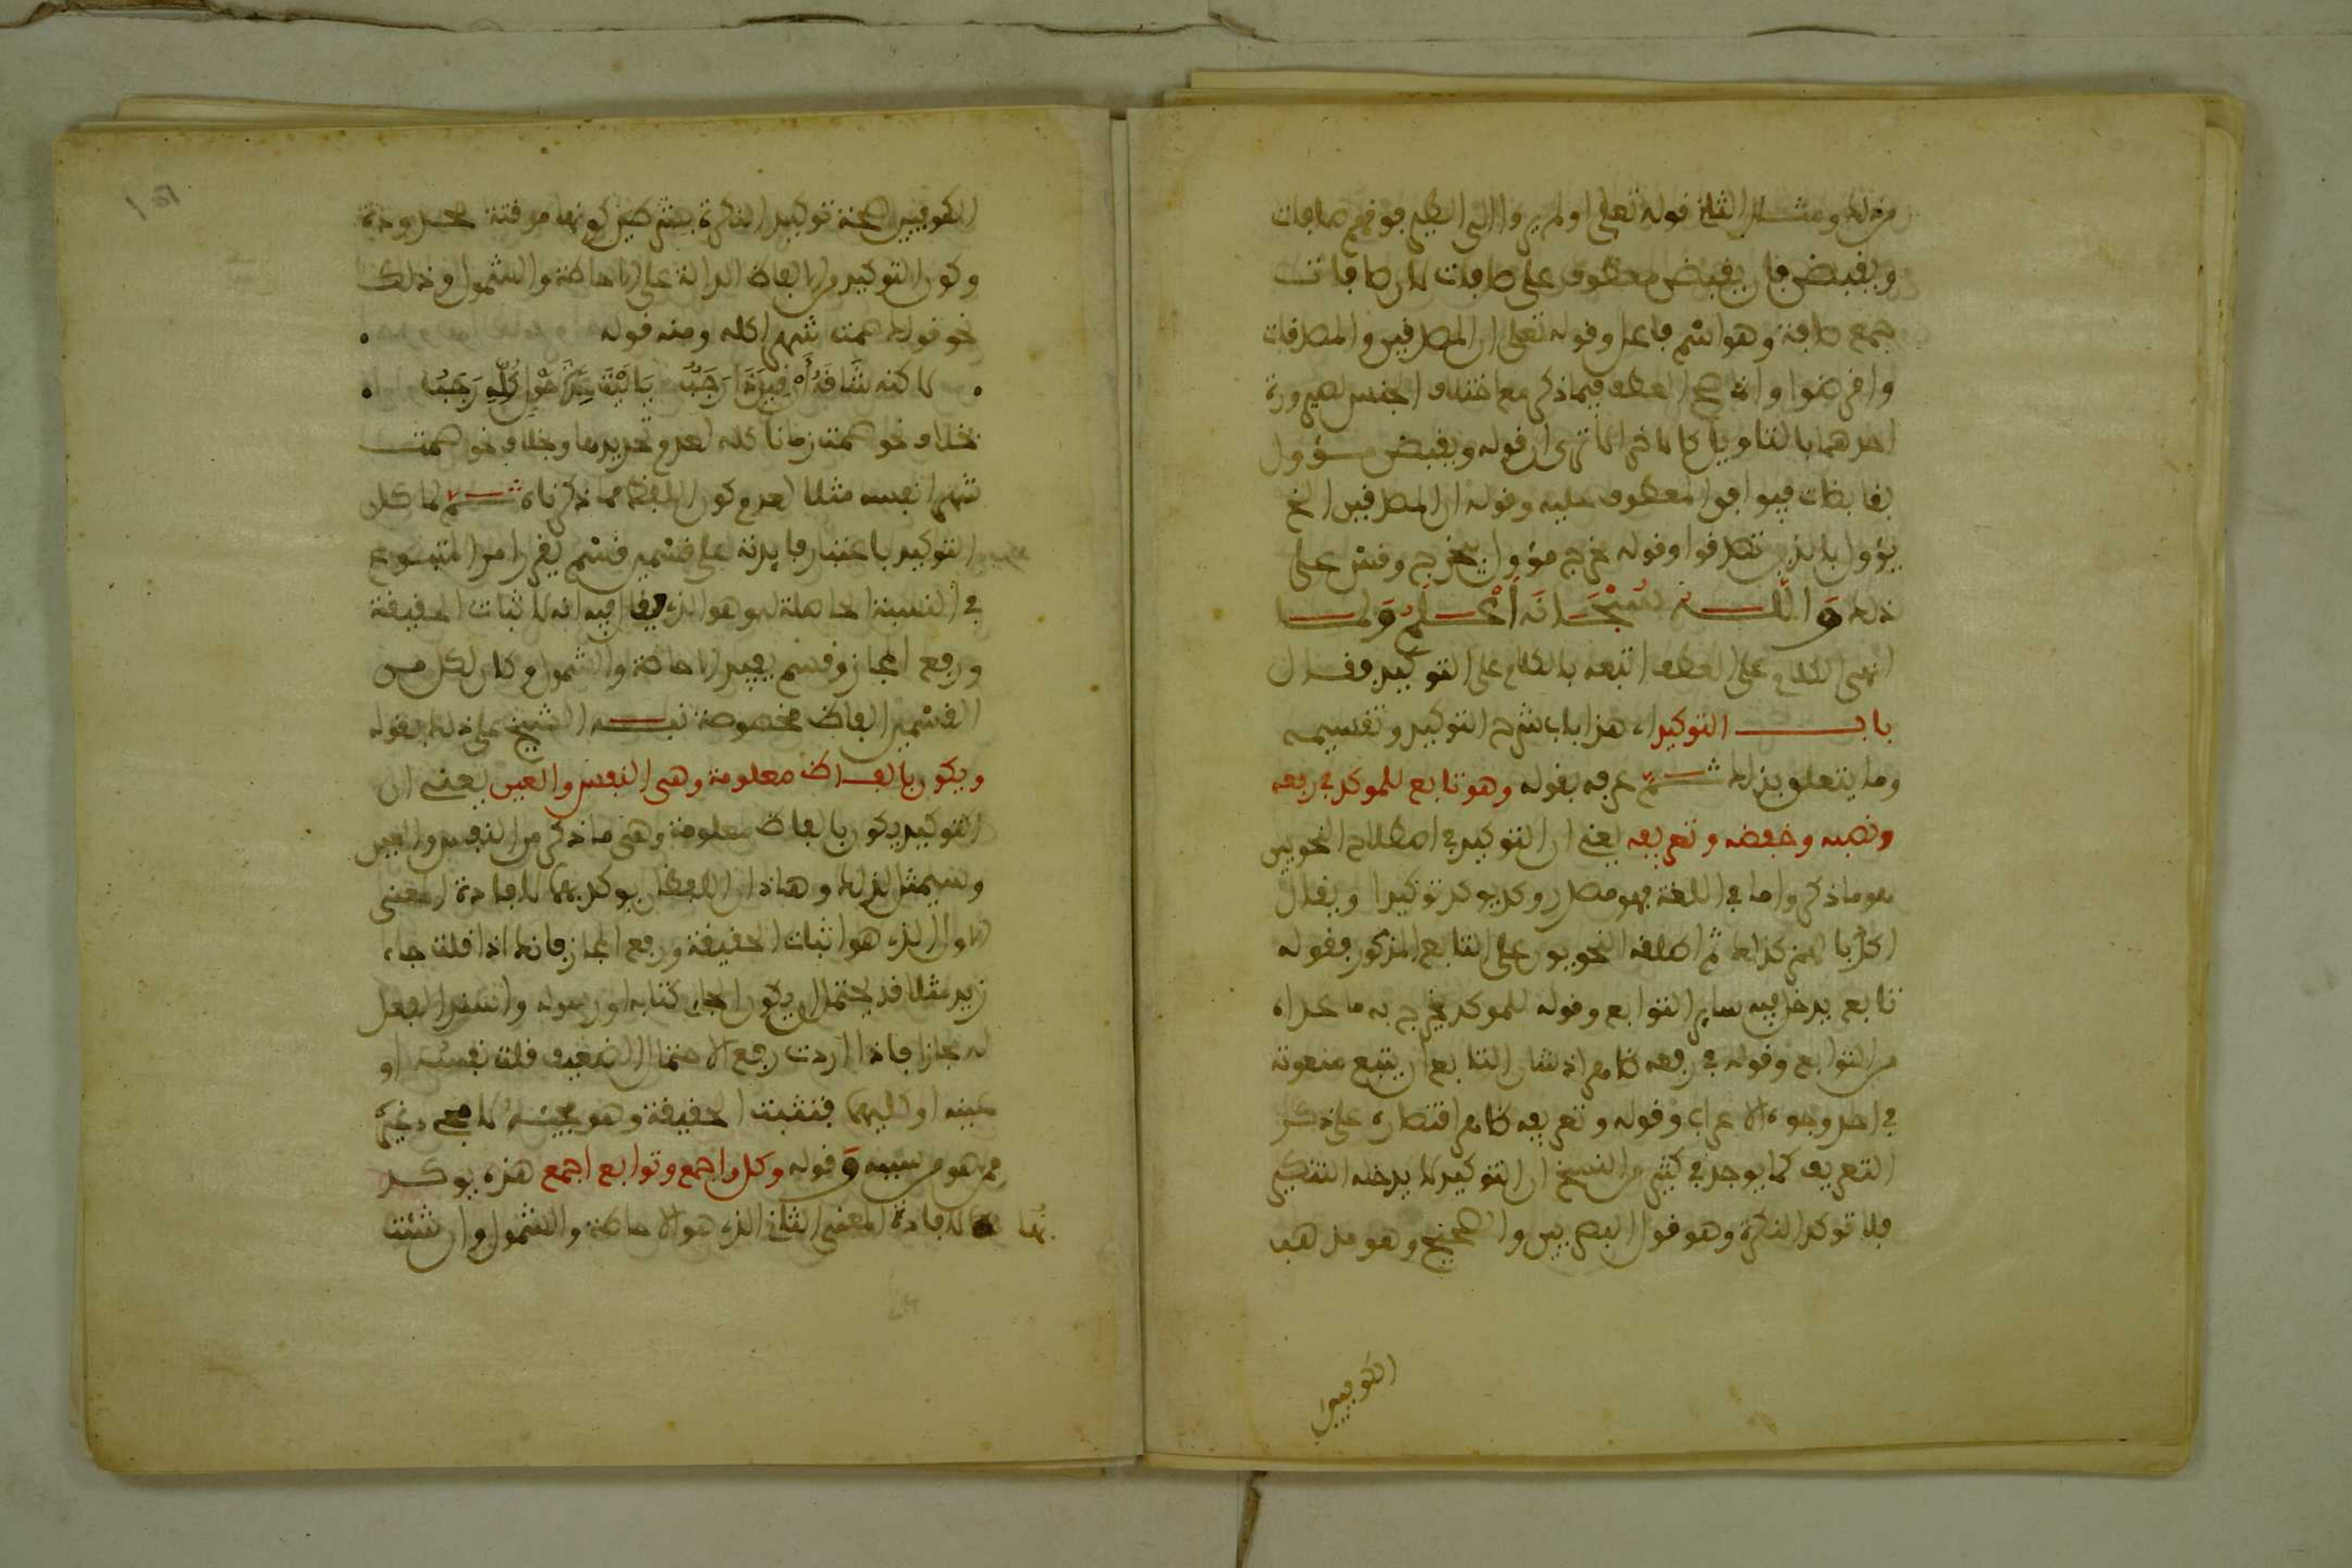 من ذلك ومثال الثاني قوله تعالى اولم يروا الى الطير فوقهم صافات
ويقبضن فان يقبضن معطوف على صافات لان صافات
جمع صافة وهو اسم فاعل وقوله تعالى ان المصدقين والمصدقات
واقرضوا وانما صح العطف فيما ذكر مع اختلاف الجنس لصيرورة
احدهما بالتاويل كالاخر الا ترى ان قوله ويقبضن مسؤول
بقابضات فيوافق المعطوف عليه وقوله ان المصدقين الخ
يؤول بالذين تصدقوا وقوله مخرج مؤول يخرج وقس على
ذلك والله سبحانه أعلم ولما
انهى الكلام على العطف اتبعه بالكلام على التوكيد فقال
باب التوكيد اي هذا باب شرح التوكيد وتقسيمه
وما يتعلق بذلك ثم عرفه بقوله وهو تابع للموكد في رفعه
ونصبه وخفضه وتعريفه يعني ان التوكيد في اصطلاح النحويين
هو ما ذكر واما في اللغة فهو مصدر وكد يوكد توكيدا ويقال
اكد بالهمز كذلك ثم اطلقه النحويون على التابع المذكور فقوله
تابع يدخل فيه ساير التوابع وقوله للموكد يخرج به ما عداه
من التوابع وقوله في رفعه ظاهر اذ شان التابع ان يتبع منعوته
في احد وجوه الاعراب وقوله وتعريفه ظاهر اقتصاره على ذكر
التعريف كما يوجد في كثير من النسخ ان التوكيد لا يدخله التنكير
فلا توكد النكرة وهو قول البصريين والصحيح وهو مذهب
الكوفيين
الكوفيين صحة توكيد النكرة بشرطين كونها موقتة محدودة
وكون التوكيد من الفاظ الدالة على الاحاطة والشمول وذلك
نحو قولك صمت شهرا كله ومنه قوله
لاكنه شاقه أن قيل ذا رجب يا ليت عدة حول كله رجب
بخلاف نحو صمت زمانا كله لعدم تحديدها وبخلاف نحو صمت
شهرا نفسه مثلا لعدم كون اللفظ مما ذكرناه ثم لما كان
التوكيد باعتبار فايدته على قسمين قسم يقرر امر المتبوع
في النسبة الحاصلة له وهو الذي يقال فيه انه لاثبات الحقيقة
ورفع المجاز وقسم يفيد الاحاطة والشمول وكان لكل من
القسمين الفاظ مخصوصة نبه الشيخ على ذلك بقوله
ويكون بالفاظ معلومة وهي النفس والعين يعني ان
التوكيد يكون بالفاظ معلومة وهي ما ذكر من النفس والعين
وسيمثل لذلك وهاذان اللفظان يوكد بهما لافادة المعنى
الاول الذي هو اثبات الحقيقة ورفع المجاز فانك اذا قلت جاء
زيد مثلا قد يحتمل ان يكون الجاء كتابه او رسوله واسند الفعل
له مجازا فاذا اردت رفع الاحتمال الضعيف قلت نفسه او
عينه او كليهما فتثبت الحقيقة وهو مجيئه لا مجيء غيره
ممن هو من سببه وقوله وكل واجمع وتوابع اجمع هذه يوكد
بها لافادة المعنى الثاني الذي هو الاحاطة والشمول وان شئت